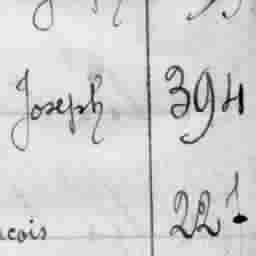 Joseph 394
cois 221